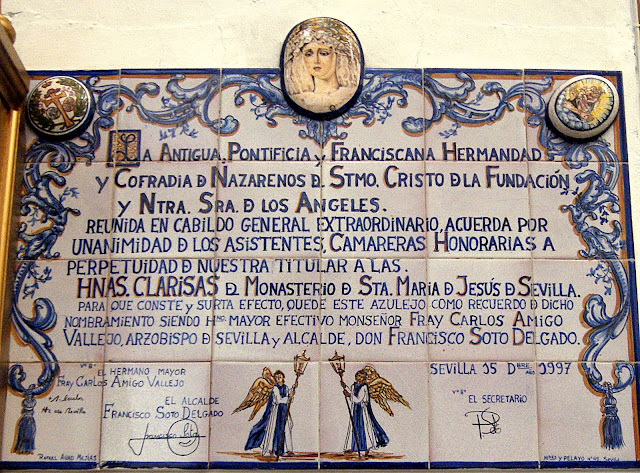 LA ANTIGUA, PONTIFICIA y FRANCISCANA HERMANDAD
Y COFRADIA D NAZARENOS D STMO. CRISTO D LA FUNDACIÓN
Y NTRA. SRA. D LOS ANGELES.
REUNIDA EN CABILDO GENERAL EXTRAORDINARIO, ACUERDA POR
UNANIMIDAD D LOS ASISTENTES, CAMARERAS HONORARIAS A
PERPETUIDAD D NUESTRA TITULAR A LAS.
HNAS. CLARISAS DL MONASTERIO D STA. MARÍA D JESÚS D SEVILLA.
PARA QUE CONSTE y SURTA EFECTO, QUEDE ESTE AZULEJO COMO RECUERDO D DICHO
NOMBRAMIENTO SIENDO HNO. MAYOR EFECTIVO MONSEÑOR FRAY CARLOS AMIGO
VALLEJO, ARZOBISPO D SEVILLA y ALCALDE, DON FRANCISCO SOTO DELGADO.
VºBº EL HERMANO MAYOR
FRAY CARLOS AMIGO VALLEJO
EL ALCALDE
FRANCISCO SOTO DELGADO
SEVILLA 15 DBRE AÑO 1997
VºBº
EL SECRETARIO
RAFAEL
y PELAYO nº 42. Sevilla